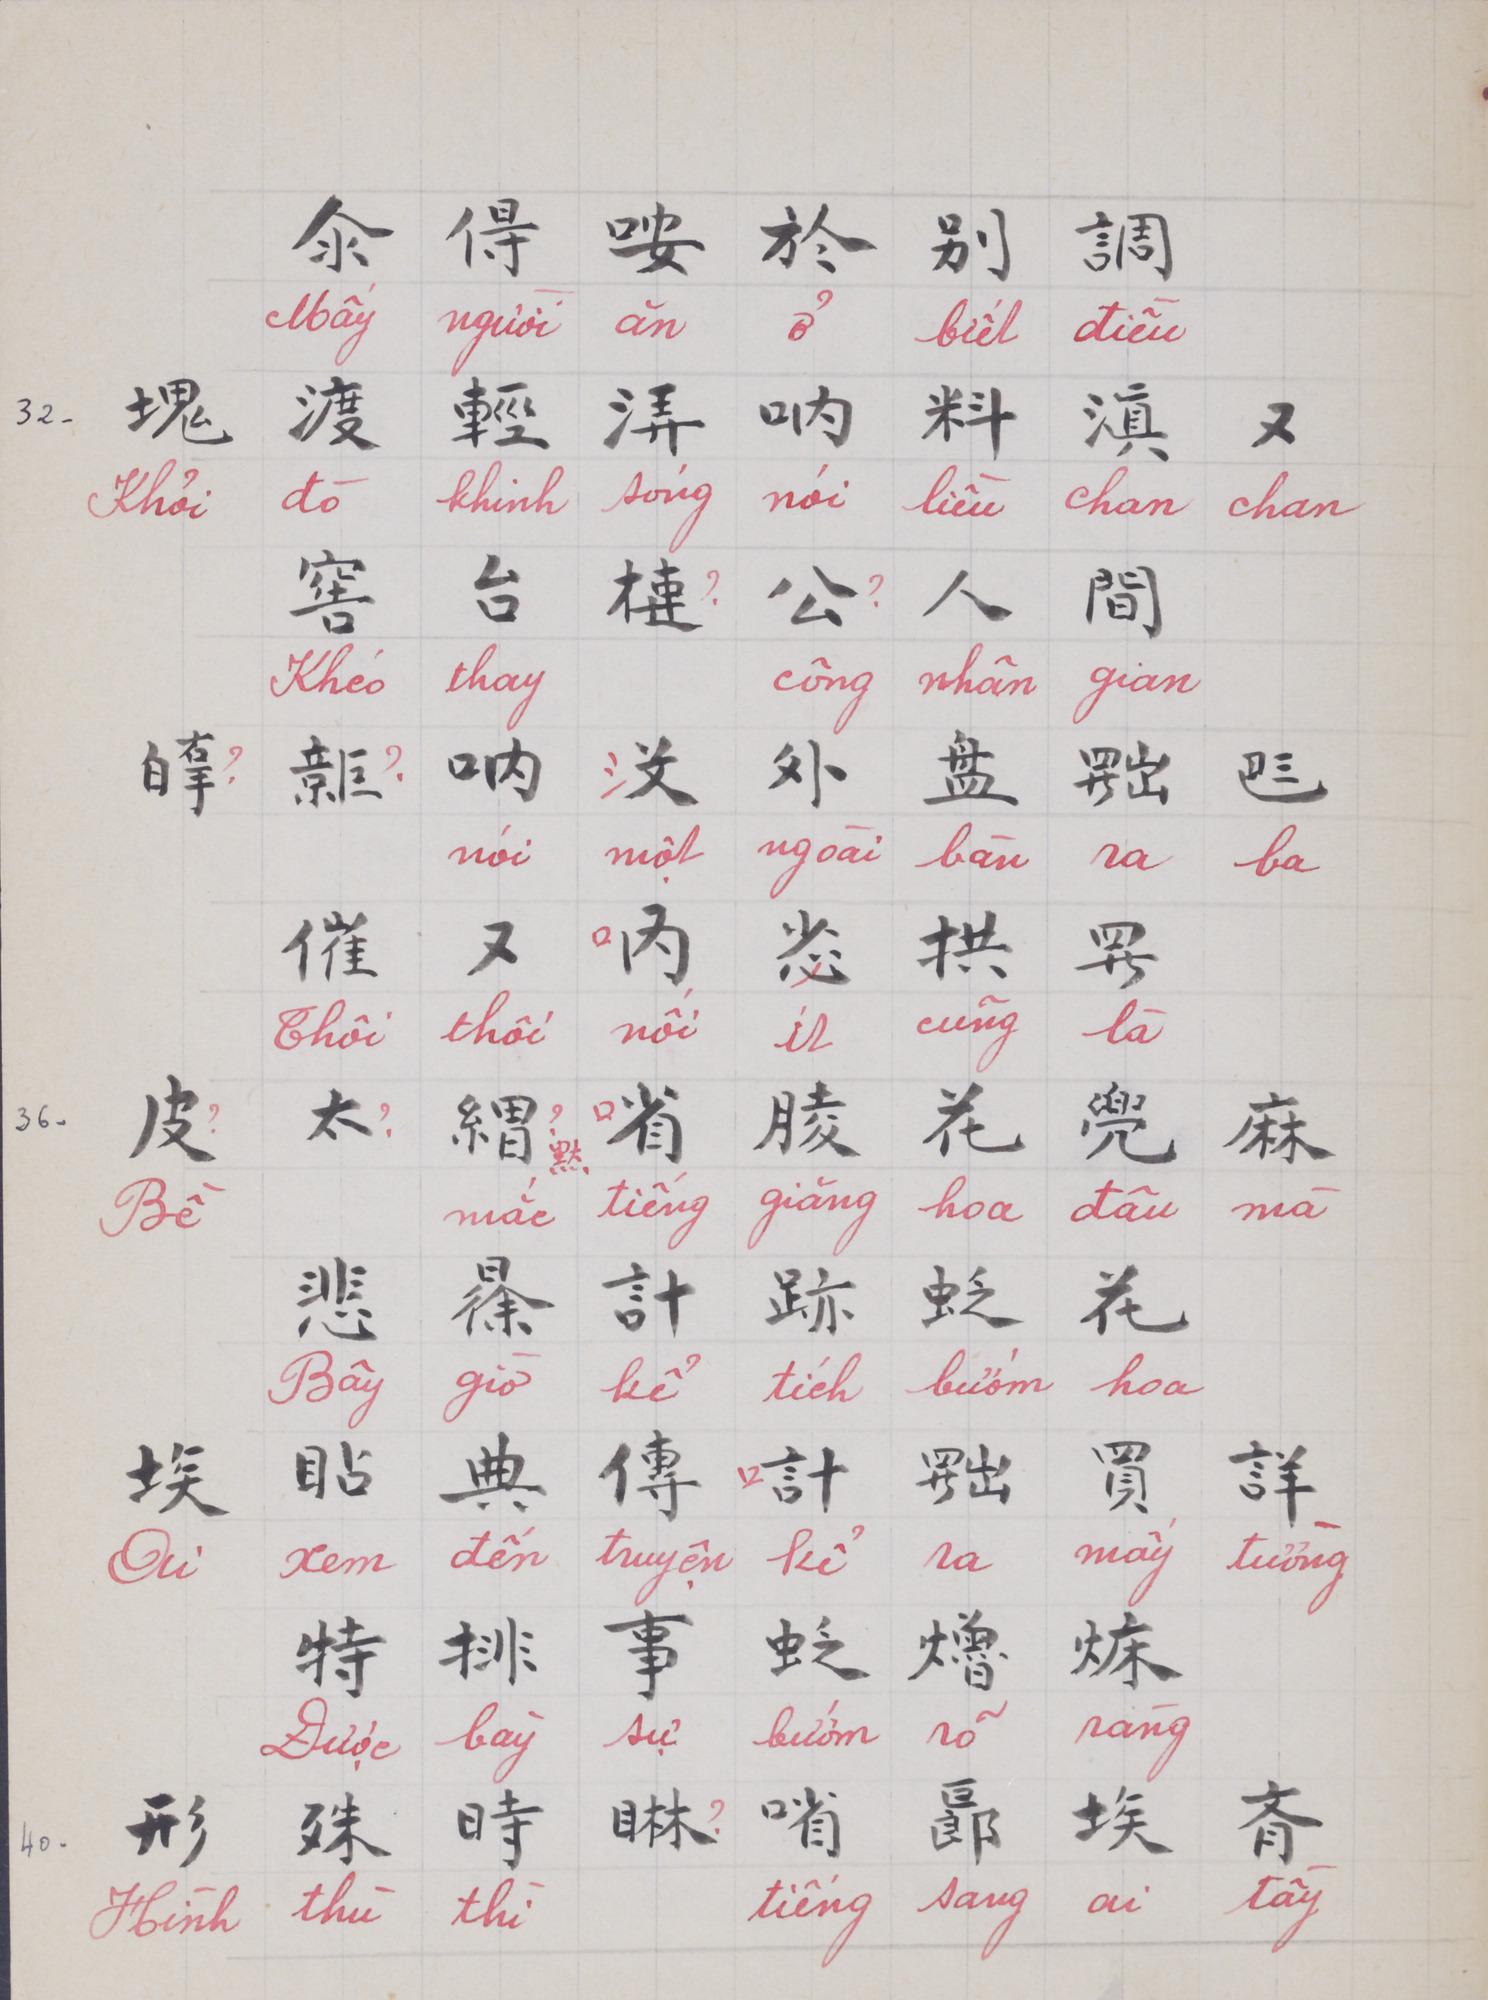 尒 㝵 咹 於 别 調
Mấy người ăn ở biết điều
32- 塊 渡 輕 㳥 吶 料 滇 又
Khỏi đò khinh sóng nói liều chan chan
窖 台 槤? 公? 人 間
Khéo thay công nhân gian
? ? 吶 汶 外 盘 𠚢 𠀧
nói một ngoài bàn ra ba
催 又 吶 拱 𱺵
Thôi thôi nối ít cũng là
36- 皮? 太? 緭? 黙 㗂 𦝄 花 兠 麻
Bề mắc tiếng giăng hoa đâu mà
悲 𣇞 計 跡 𧊉 花
Bây giờ kể tích bướm hoa
埃 貼 典 傳 計 𠚢 買 詳
Ai xem đến truyện kể ra mấy tường
特 排 事 𧊉 𤒠 𤇥
Được bày sự bướm rõ ràng
40- 形 殊 時 ? 㗂 郎 埃 斉
Hình thù thì tiếng sang ai tầy